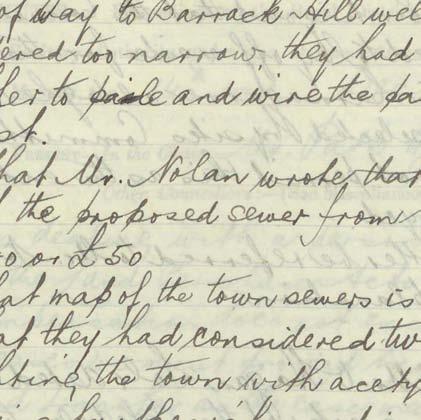 of way to Barrack Hill wel
ered too narrow, they had
der to paile and wire the pa
st.
hat Mr. Nolan wrote that
the proposed sewer from
0 or £50
at map of the town sewers is
at they had considered tw
hting the town with acety